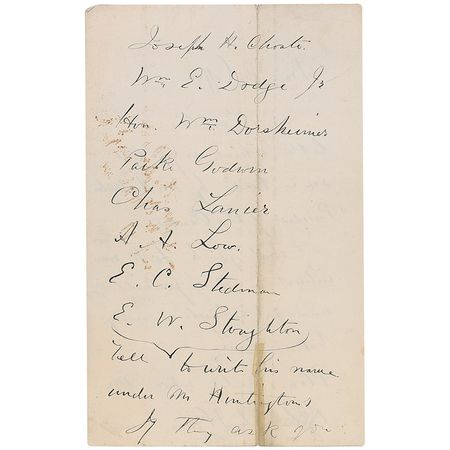 Joseph H. Choate.
Wm. E. Dodge Jr
Hon. Wm. Dorsheimer
Parke Godwin
Chas Lanier
A. A. Low.
E. C. Stedman
E. W. Stoughton
Tell to write his name
under Mr Huntingtons
If they ask you